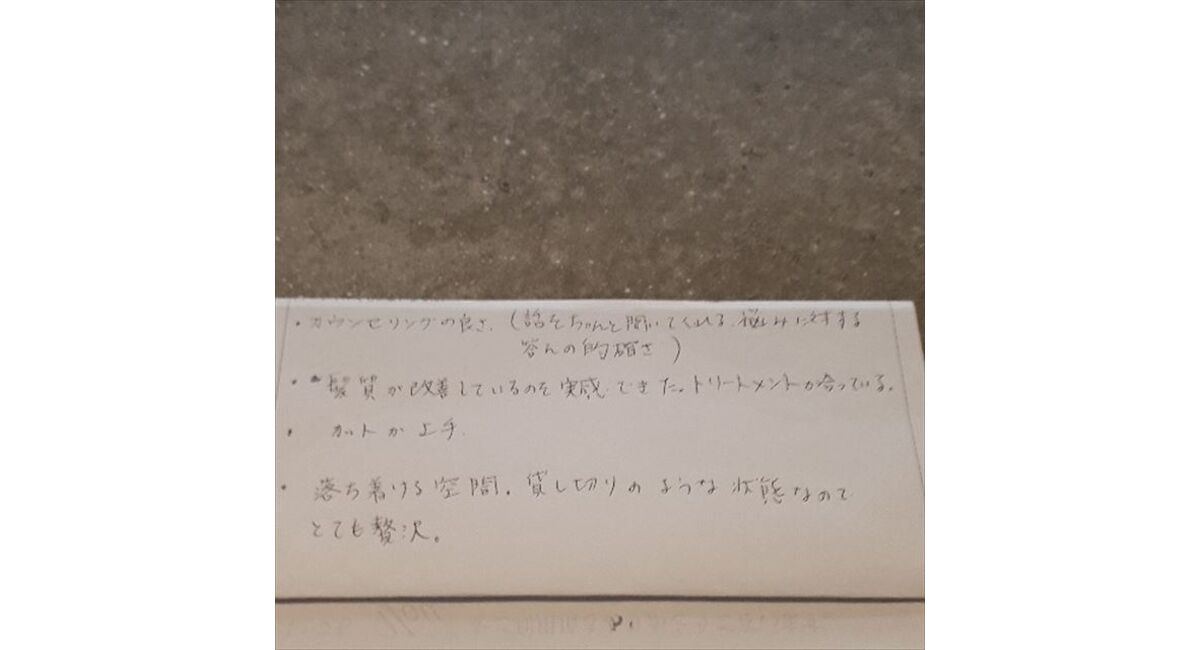 ・カウンセリングの良さ.(話をちゃんと聞いてくれる.悩みに対する
答えの的確さ)
・髪質が改善しているのを実感できた。トリートメントが合っている。
・カットが上手.
・落ち着ける空間。貸し切りのような状態なので
とても贅沢。